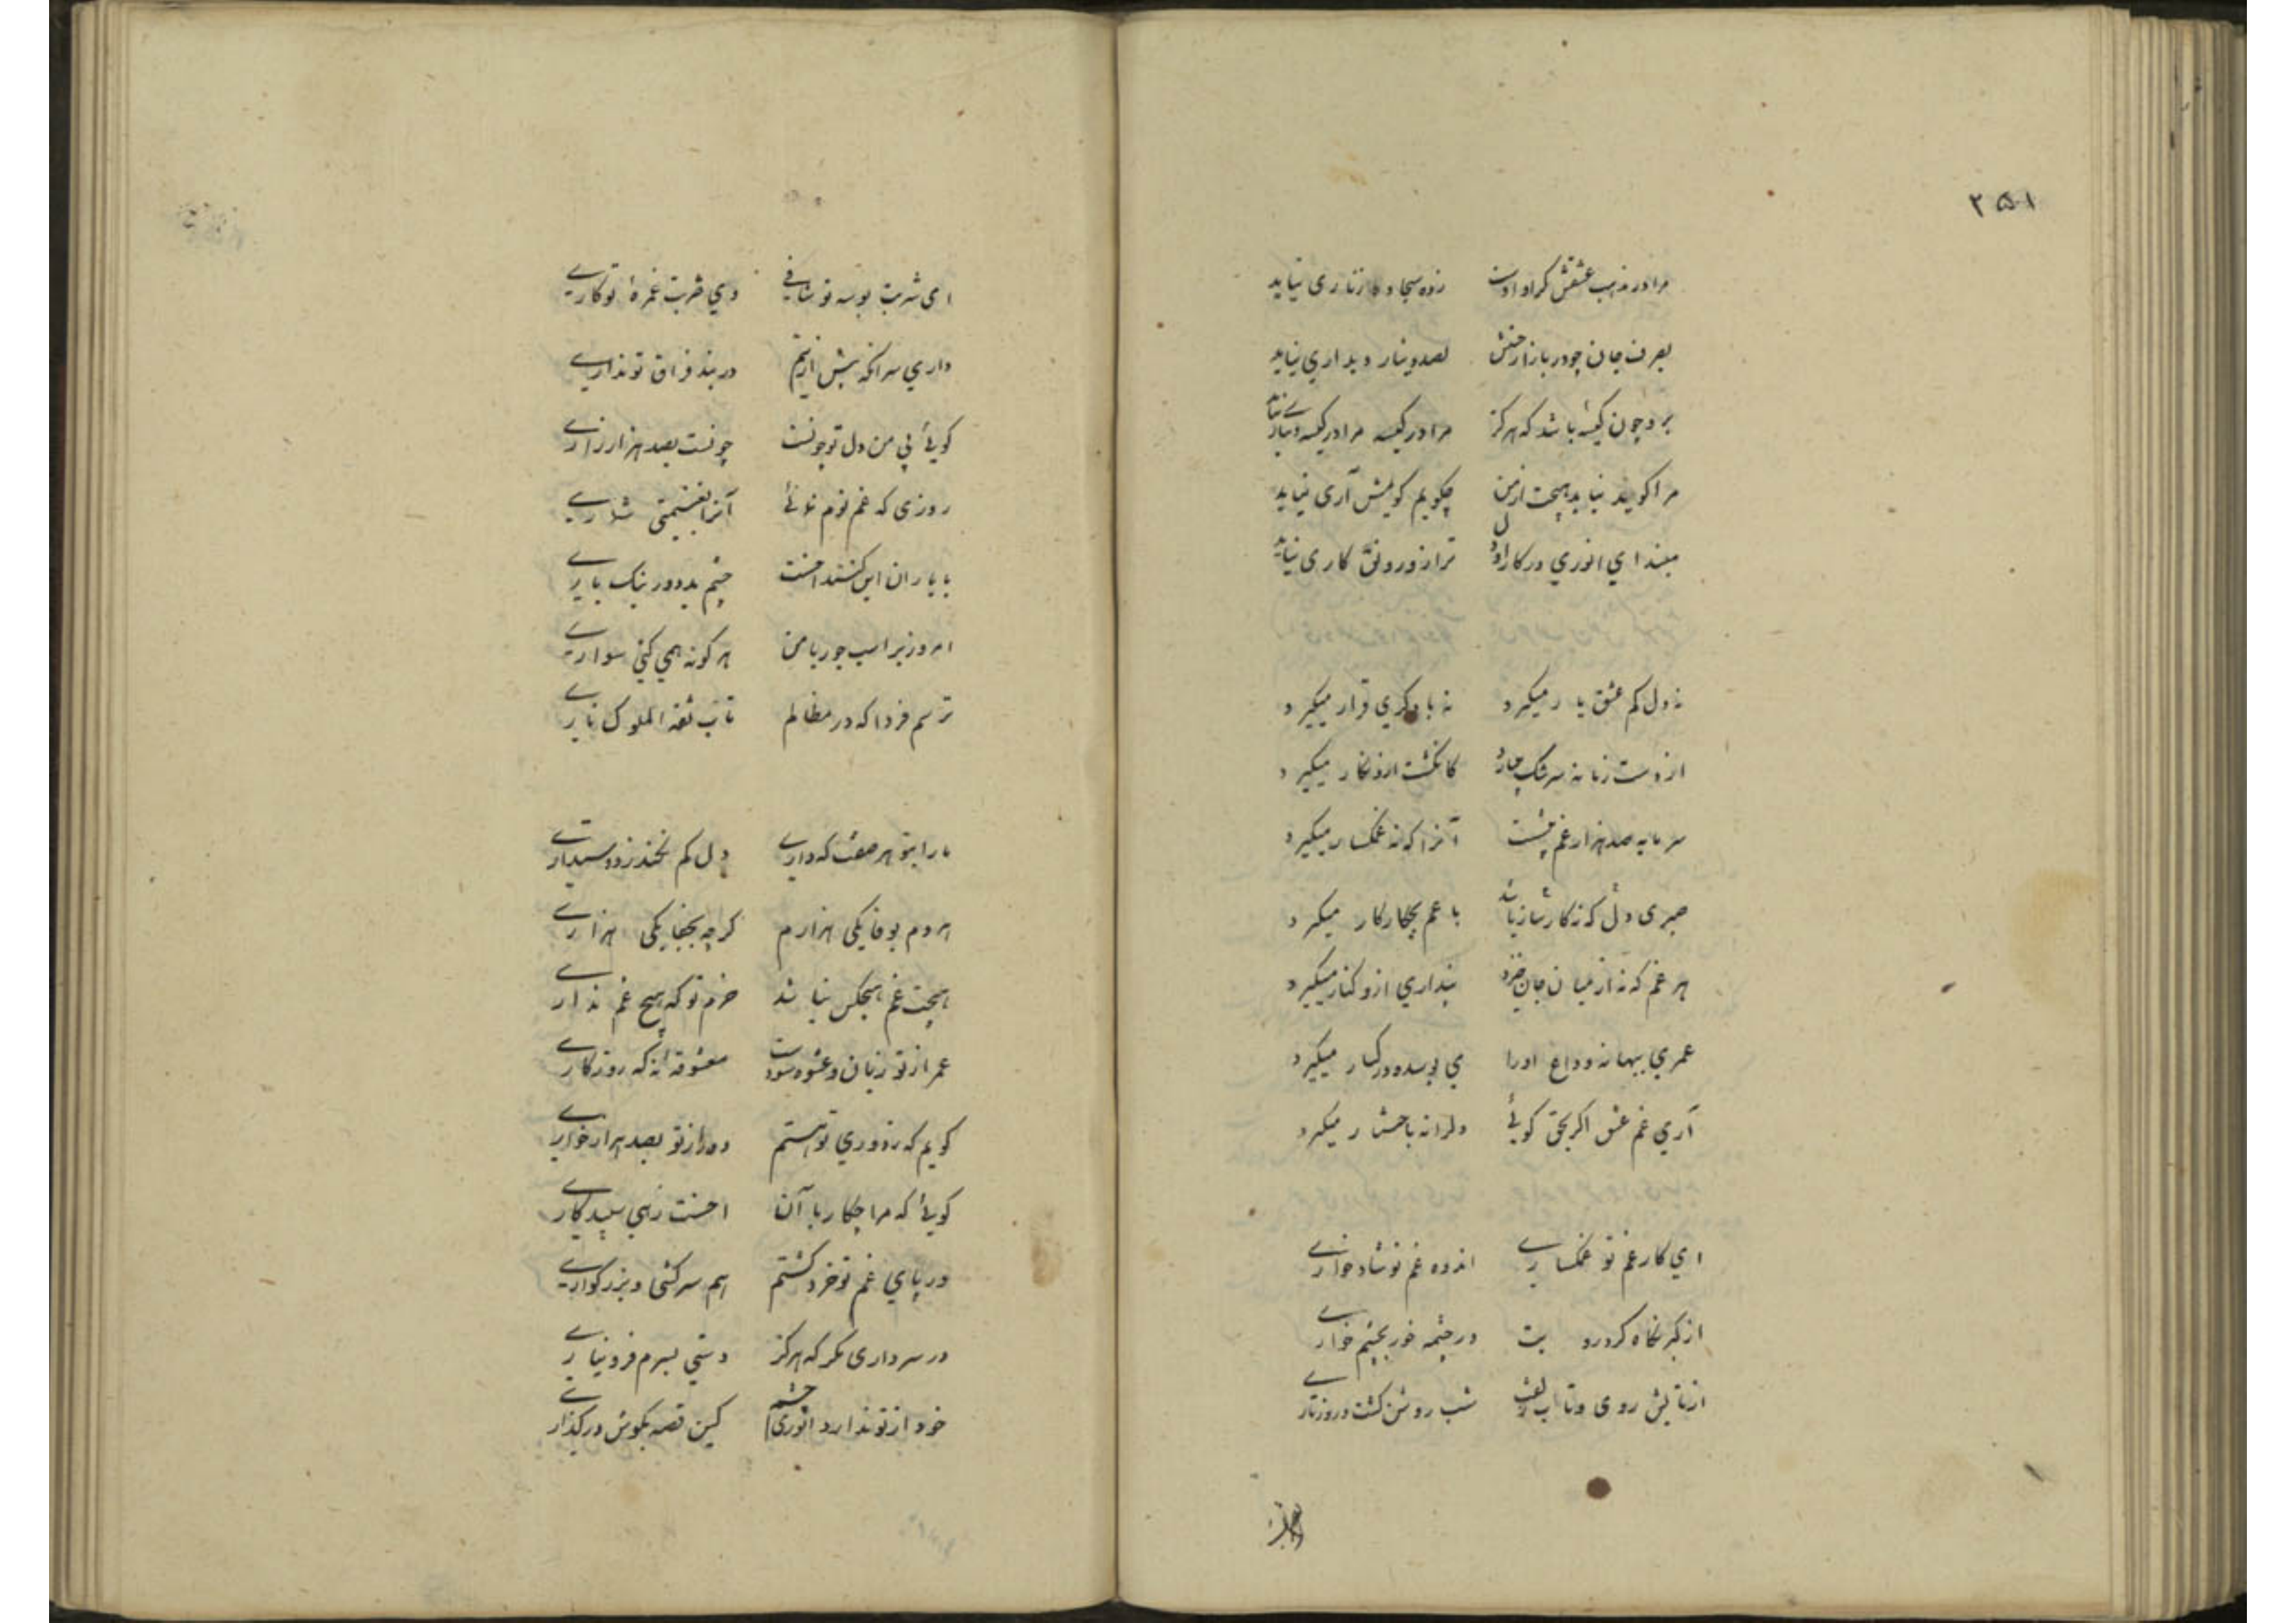 ۲۵۱
مرا در مذهب عشقش کر او اوست زده سجاده زناری نیاید
بصرف جان چو در بازار حسنش بصد دینار دیداری نیاید
برو چون کیسه باشد که هرکز مرا در کیسه مرا در کیسه دیناری نیاید
مرا کویند نیاید هیچت از من چکویم کویمش آری نیاید
مبند ای انوری در کار او دل ترا زو رونق کاری نیاید
نه دل کم عشق یار میکیرد نه با دکری قرار میکیرد
از دست زمانه سرشک کانکشت ازو نکار میکیرد
سرمایه صد هزار غم بیشست آنرا که نه غمکسار میکیرد
صبری و دلی که زکار شازیانند با غم بچکار کار میکیرد
هر غم که نه از میان جان خیزد پنداری ازو کنار میکیرد
عمری ببهانه وداع اورا می بوسد و در کنار میکیرد
آری غم عشق اکر بحق کوئی دلرا نه باختیار میکیرد
ای کار غم تو غمکساری اندوه غم تو شادخواری
از کبر نکاه کرد رویت در چشمه خور بچشم خواری
از تابش روی و تاب زلفت شب روشن کشت و روز تاری
ای شربت بوسه تو شافی وی ضربت غمزه تو کاری
داری سر آنکه بیش ازینم در بند فراق تو نداری
کوئی بی من دل تو چونست چونست بصد هزار زاری
روزی که غم توم نمائی آنرا بغنیمتی شماری
با یاران این کنند احسنت چشم بد دور نیک یاری
امروز بر اسب جور با من هر کونه همی کنی سواری
ترسم فردا که در مظالم تاب ثقة الملوک ناری
مارا بتو هر صفت که داری دل کم نکند ز دوستداری
هر دم بوفا یکی هزارم کرچه بجفا یکی هزاری
هیچت غم هیچکس نباشد خرم تو که هیچ غم نداری
عمر از تو زیان و عشوه سودست معشوقه نه که روزکاری
کویم که ز دوری تو هستم دور از تو بصد هزار خواری
کوئی که مرا چکار با آن احسنت زهی سپیدکاری
در پای غم تو خرد کشتم هم سرکشی و بزرکواری
در سر داری مکر که هرکز دستی بسرم فرو نیاری
خود از تو ندارد انوری چشم کین قصه بکوش درکذاری